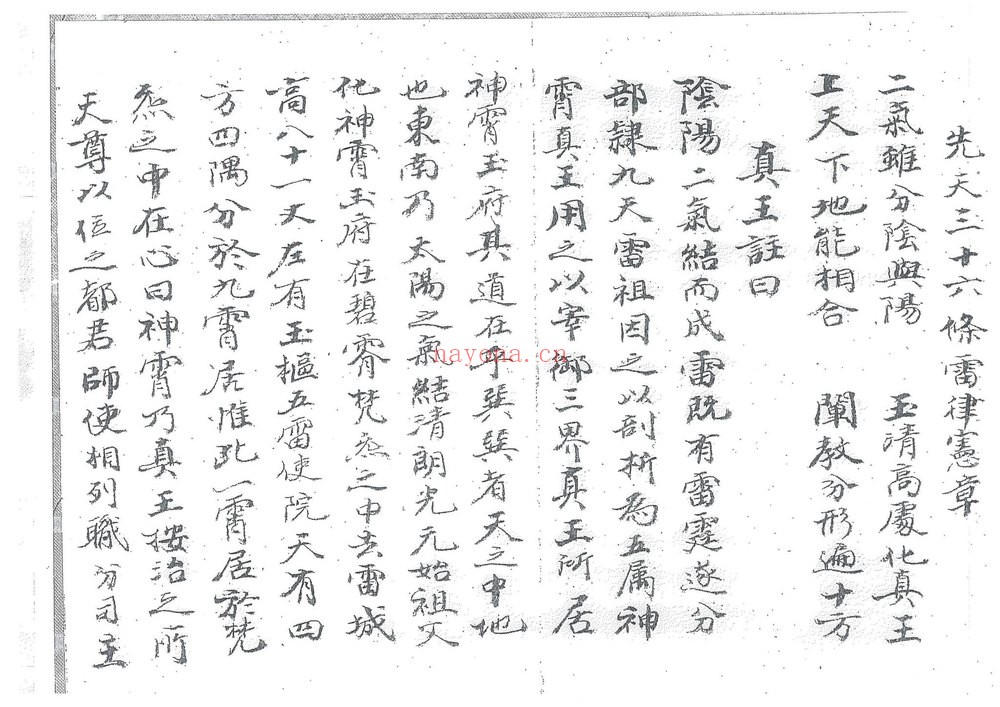 先天三十六條雷律憲章
二氣雖分陰與陽 玉清高處化真王
上天下地能相合 闡教分形遍十方
真王註曰
陰陽二氣結而成雷既有雷霆遂分
部隸九天雷祖因之以剖析為五属神
霄真王用之以宰御三界真王所居
神霄玉府其道在乎巽巽者天之中地
也東南乃太陽之氣結清朗光元始祖父
化神霄玉府在碧霄梵炁之中去雷城
高八十一丈左有玉樞五雷使院天有四
方四隅分於九霄居惟此一霄居於梵
炁之中在心曰神霄乃真王按治之所
天尊以位之都君師使相列職分司主
nayona.cn